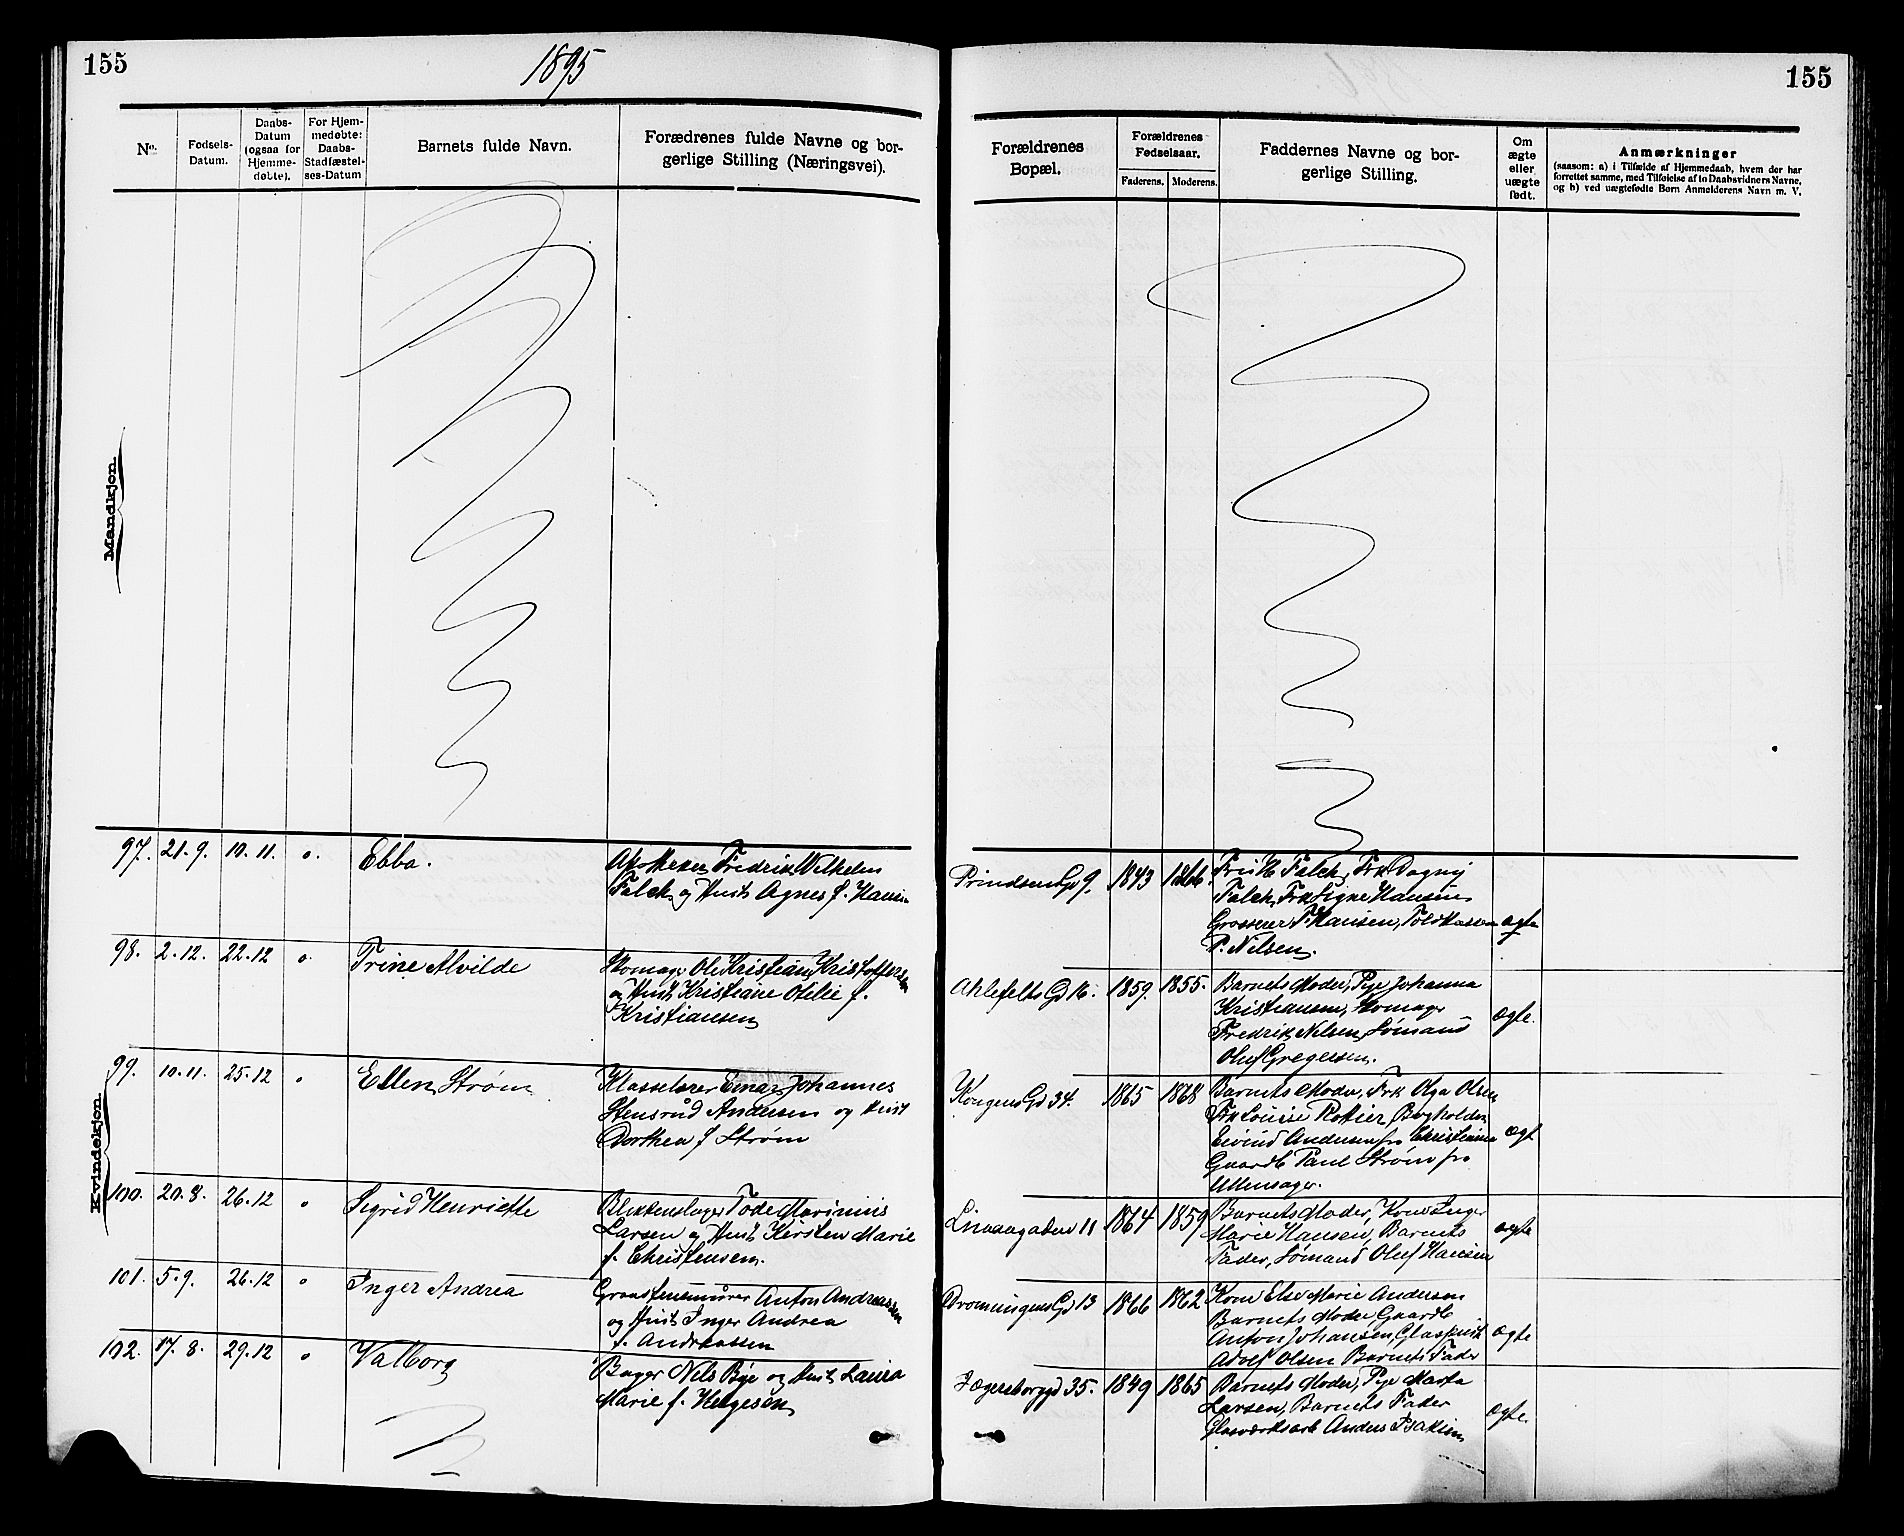 155
1895
155
No.
Fødsels-
Datum.
Daabs-
Datum
(ogsaa for
Hjemme-
døbte).
For Hjem-
medøbte:
Daabs-
Stadfæstel-
ses-Datum
Barnets fulde Navn.
Forædrenes fulde Navne og bor-
gerlige Stilling (Næringsvei).
Forældrenes
Bopæl.
Forældrenes
Fødselsaar.
Faderens. Moderens.
Faddernes Navne og bor-
gerlige Stilling.
Om
ægte
eller
uægte
født.
Anmærkninger
(saasom: a) i Tilfælde af Hjemmedaab, hvem der har
forrettet samme, med Tilføielse af to Daabsvidners Navne,
og b) ved uægtefødte Børn Anmelderens Navn m. V.
Mandkjøn.
Kvindekjøn.
97. 21.9. 10.11. o. Ebba.
Apotheker Fredrik Wilhelm
Falck og Hust Agnes f. Hansen
Prindsens Gd 9. 1843 1866.
Fru H Falck, Frk Dagny
Falck, Frk Signe Hansen
Grosserer T Hansen, Toldkasserer
P. Nilsen.
ægte
98. 2.12. 22.12 o. Trine Alvilde
Skomager Ole Kristian Kristoffersen
og Hust Kristiane Otilie f.
Kristiansen
Ahlefelts Gd 16. 1859. 1855.
Barnets Moder, Pige Johanna
Kristiansen, Skomager
Fredrik Nilsen, Sømand
Oluf Gregersen.
ægte.
99. 10.11. 25.12 o Ellen Strøm
Klasselærer Einar Johannes
Stensrud Andersen og Hust
Dorthea f Strøm
Kongens Gd 34. 1865 1868
Barnets Moder, Frk Olga Olsen
Frk Louise Bogholder
Eivind Andersen fra Christiania
Gaardb Paul Strøm fra
Ullensager.
ægt
100. 20.8. 26.12 o Sigrid Henriette
Blikkenslager Tode Marinius
Larsen og Hust Kirsten Marie
f. Christensen.
Linaaegaden 11 1864 1859
Barnets Moder, Kone Inger
Marie Hansen, Barnets
Fader, Sømand Oluf Hansen
ægte
101. 5.9. 26.12 o Inger Andrea
Graastensmurer Anton Andreassen
og Hust Inger Andrea
f. Andreassen
Dronningens Gd 13 1866 1862
Kone Else Marie Andersen
Barnets Moder, Gaardb
Anton Johansen, Glaspust
Adolf Olsen Barnets Fader
ægte
102. 17.8. 29.12 o Valborg
Bager Nils Bye og Hust Laura
Marie f. Helgesen
Jegersborggd 35. 1849 1865
Barnets Moder, Pige Marta
Larsen, Barnets Fader
Glasværksarb Anders Isaksen
ægte.